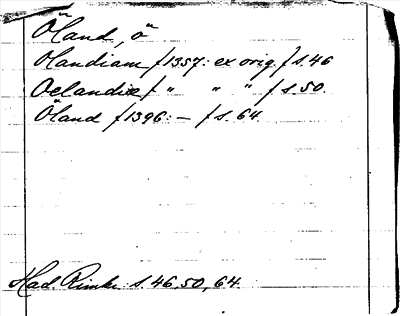 Öland, ö
Olandiam /1357: ex orig./ s. 46
Oelandiæ / " " " / s. 50.
Öland /1396: — / s. 64.
Had. Rimkr. s. 46, 50, 64.